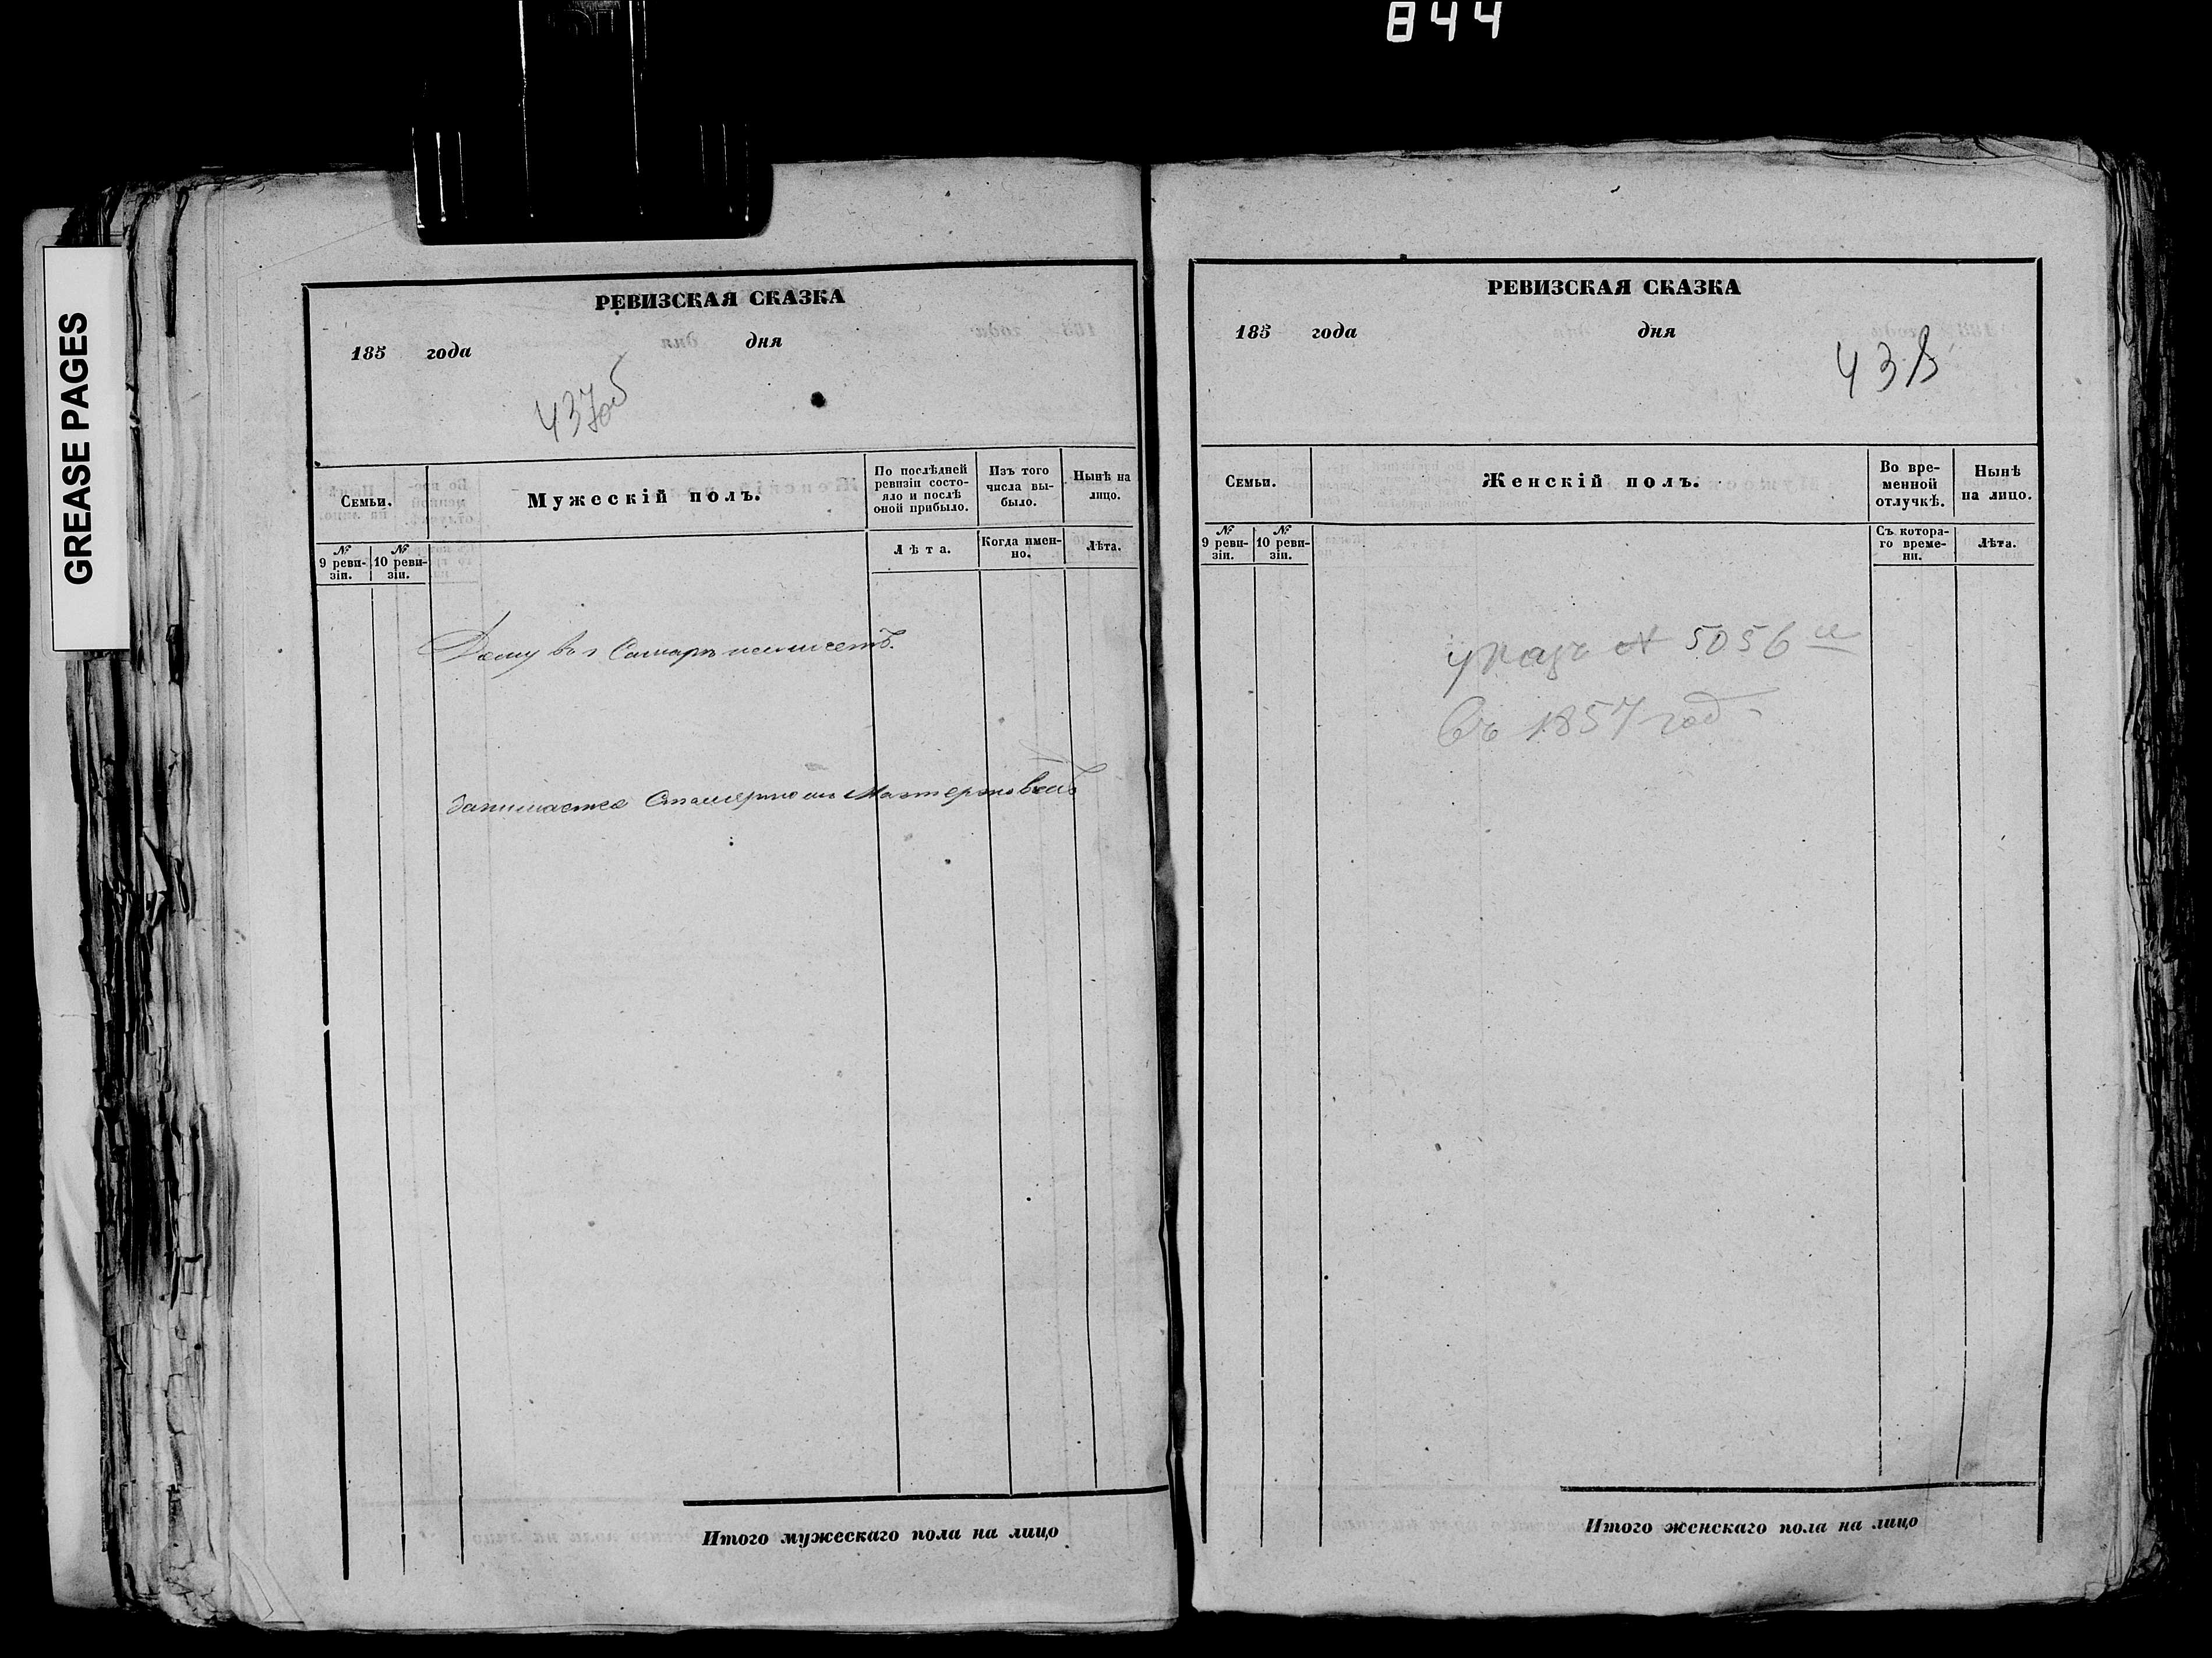 844
GREASE PAGES
РЕВИЗСКАЯ СКАЗКА
185 года дня
437об
Семьи.
Мужескій полъ.
По послѣдней ревизіи состо-
яло и послѣ
оной прибыло.
Изъ того
числа вы-
было.
Нынѣ на
лицо.
№
9 реви-
зіи.
№
10 реви-
зіи.
Лѣта.
Когда имен-
но.
Лѣта.
Дому во г Самарѣ неимеетъ.
Занимается Мастерствомъ
Итого мужескаго пола на лицо
РЕВИЗСКАЯ СКАЗКА
185 года дня
438
Семьи.
Женскій полъ.
Во вре-
менной
отлучкѣ.
Нынѣ
на лицо.
№
9 реви-
зіи.
№
10 реви-
зіи.
Съ котора-
го време-
ни.
Лѣта.
указъ № 5056
Съ 1857 год
Итого женскаго пола на лицо